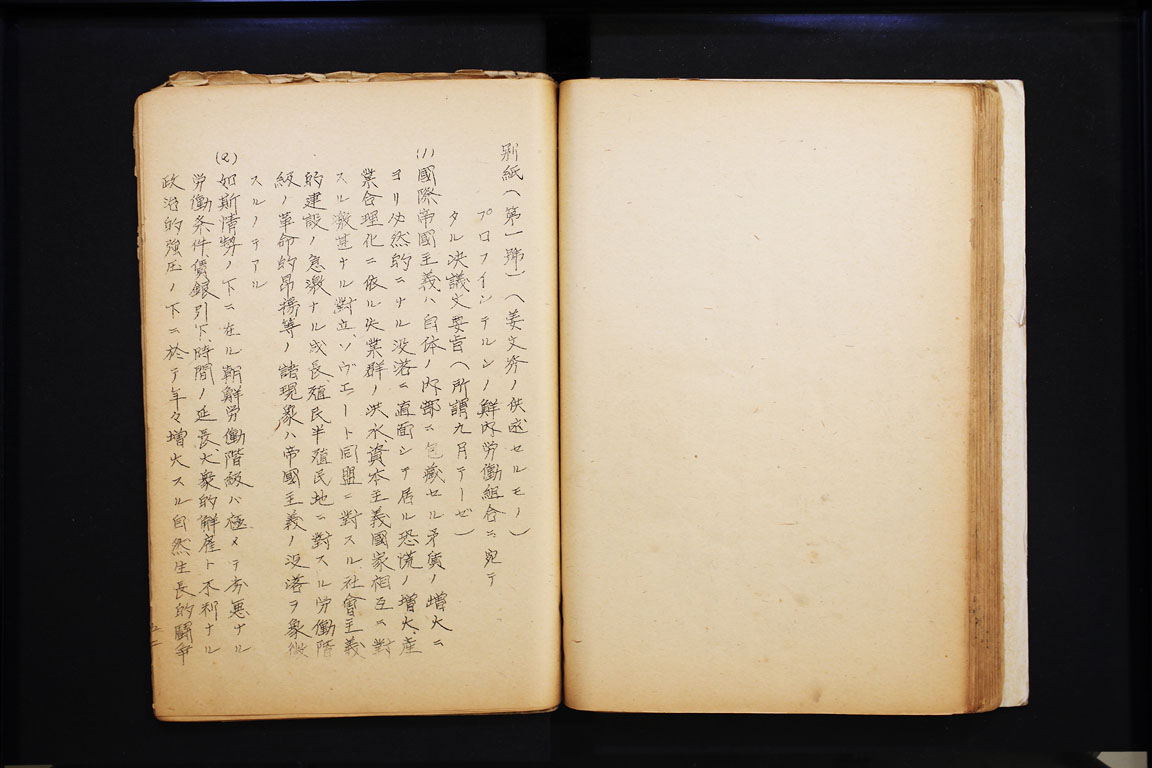 別紙(第一號)(姜文秀ノ供述セルモノ)
プロフインテルンノ鮮内労働組合ニ宛テ
タル決議文要旨(所謂九月テーゼ)
(1)國際帝國主義ハ自体ノ内部ニ包藏セル矛盾ノ增大ニ
ヨリ必然的ニナル没落ニ直面シテ居ル恐慌ノ增大、産
業合理化ニ依ル失業群ノ洪水、資本主義國家相互ニ對
スル激甚ナル對立、ソヴエート同盟ニ對スル社會主義
的建設ノ急激ナル成長、殖民半殖民地ニ對スル労働階
級ノ革命的昂揚等ノ諸現象ハ帝國主義ノ没落ヲ象徴
スルノテアル
(2)如斯情勢ノ下ニ在ル朝鮮労働階級ハ極メテ劣悪ナル
労働条件、賃銀引下、時間ノ延長、大衆的解雇ト不利ナル
政治的強圧ノ下ニ於テ年々增大スル自然生長的闘爭